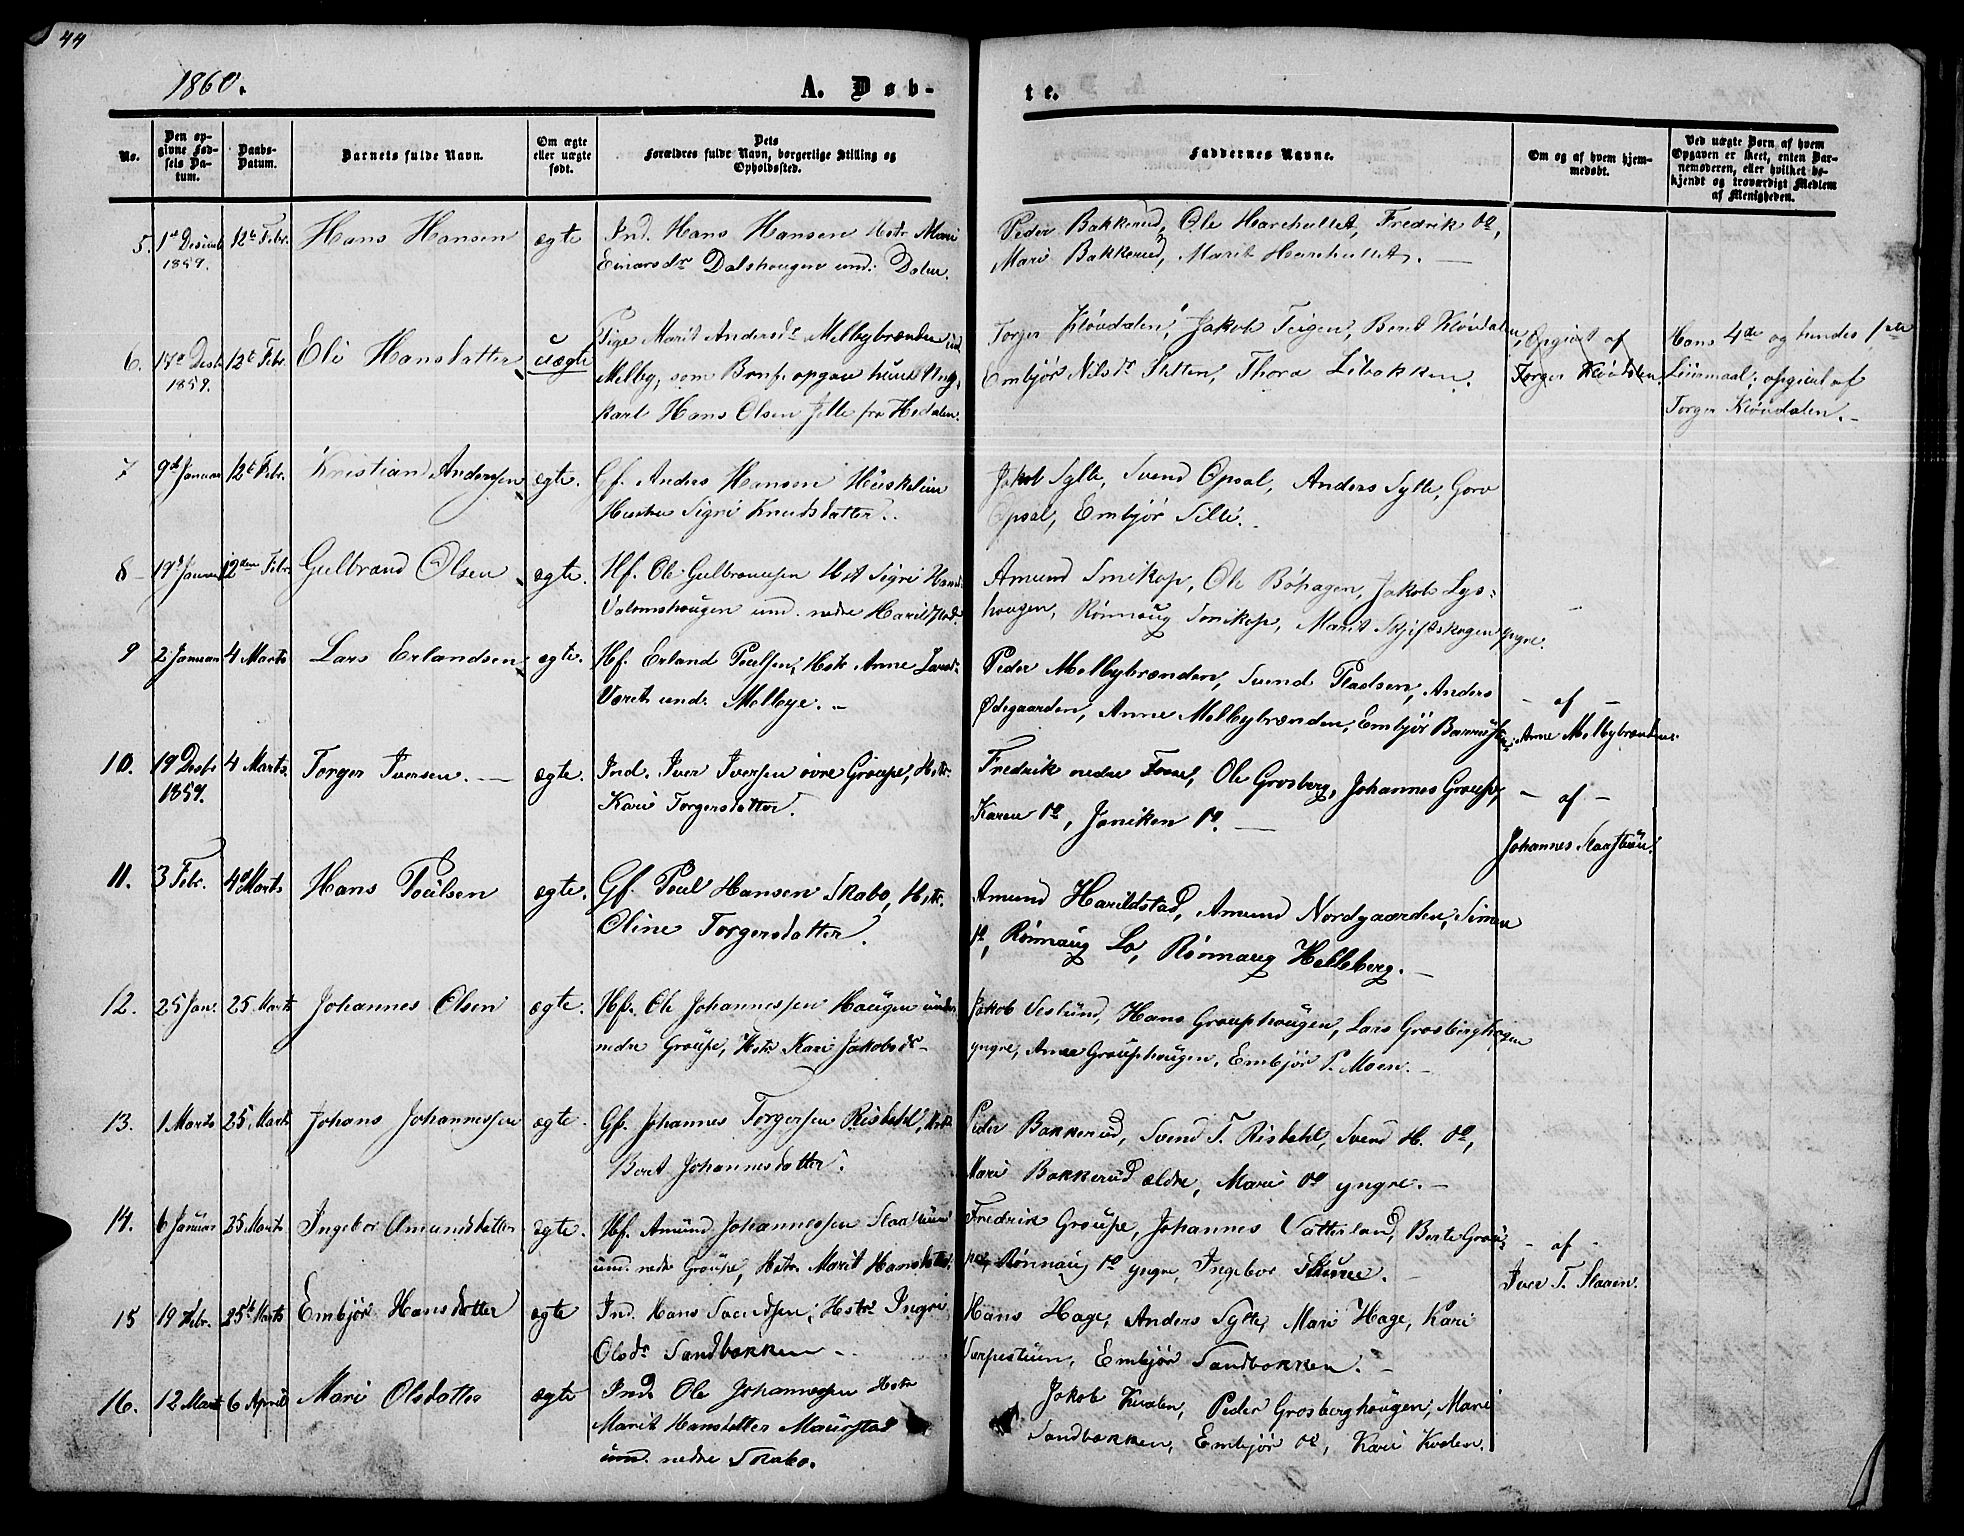 44
1860.
A. Døb-
te.
No.
Den op-
givne Fød-
sels Da-
tum.
Daabs-
Datum.
Barnets fulde Navn.
Om ægte
eller uægte
født.
Dets
Forældres fulde Navn, borgerlige Stilling og
Opholdssted.
Faddernes Navne.
Om og af hvem hjem-
medøbt.
Ved uægte Børn af hvem
Opgaven er skeet, enten Bar-
nemoderen, eller hvilket be-
kjendt og troværdigt Medlem
af Menigheden.
5. 1ste Desemb 12te Febr. Hans Hansen ægte Ind. Hans Hansen Hstr Mari
1859. Einarsdr Dalshougen und: Dalen.
Peder Bakkerud, Ole Harehullet, Fredrik do,
Mari Bakkerud, Marit Harehullet. —
6. 17de Desb 12te Febr. Eli Hansdatter uægte Pige Marit Andersdr Melbybrænden und
1859. Melby, som Barnf. opgav hun Ung-
karl Hans Olsen Jille fra Hedalen.
Torger Kløvdalen, Jakob Teigen, Berit Kløvdalen,
Embjør Nilsdr Sletten, Thora Libakken.
Opgivet af
Torger Kløvdalen.
Hans 4de og hendes 1ste
Leiermaal; opgivet af
Torger Kløvdalen. —
7 9de Januar 12te Febr. Kristian Andersen ægte. Gf. Anders Hansen Huskelien
Hustru Sigri Knudsdatter.
Jakob Sylte, Svend Opsal, Anders Sylte, Goro
Opsal, Embjør Sille.
8 19de Januar 12den Febr. Gulbrand Olsen ægte. Hf. Ole Gulbrandsen Hst Sigri Hansd
Valomshougen und. nedre Harildstad.
Amund Smikop, Ole Bøhagen, Jakob Lys-
hougen, Rønnaug Smikop, Marit Skjefteskogen yngre.
9 2 Januar 4 Marts Lars Erlandsen ægte. Hf. Erland Poulsen, Hstr Anne Larsd.
Voret und. Melbye. —
Peder Melbybrænden, Svend Pladsen, Anders
Ødegaarden, Anne Melbybrænden, Embjør
— af —
Anne Melbybrænden
10. 19 Desbr 4 Marts. Torger Iversen. — ægte. Ind. Iver Iversen øvre Groupe, Hstr.
1859. Kari Torgersdatter.
Fredrik nedre Fosse, Ole Grosberg, Johannes Groupe,
Karen do, Janiken do. —
— af —
Johannes Slaastuen.
11. 3 Febr. 4de Marts Hans Poulsen ægte. Gf. Poul Hansen Skabo, Hstr.
Oline Torgersdatter.
Amund Harildstad, Amund Nordgaarden, Simen
do, Rønnaug Lo, Rønnaug Helleberg. —
12. 25 Jan. 25 Marts Johannes Olsen ægte. Hf. Ole Johannessen Haugen under
nedre Groupe, Hstr Kari Jakobsdr —
Jakob Veslund, Hans Grouphougen, Lars Grosberghagen
yngre, Anne Grouphougen, Embjør P. Moen. —
13. 1 Marts 25 Marts Johans Johannessen ægte. Gf. Johannes Torgersen Risdahl, Hstr
Berit Johannesdatter.
Peder Bakkerud, Svend T. Risdahl, Svend H. do,
Mari Bakkerud ældre, Mari do yngre. —
14. 6 Januar 25 Marts Ingebor Amundsdatter ægte. Hf. Amund Johannessen Slaastuen
und. nedre Groupe, Hstr. Marit Hansdatter.
Fredrik Groupe, Johannes Vatterland, Berte Grou-
pe, Rønnaug do yngre, Ingebor Skurve. —
— af —
Iver T. Slaaen.
15 19 Febr. 25te Marts Embjør Hansdatter ægte Ind. Hans Svendsen; Hstr Ingri
Olsdr Sandbakken —
Hans Hage, Anders Sylte, Mari Hage, Kari
Varpestuen, Embjør Sandbakken. —
16. 12 Marts 6 April Mari Olsdatter ægte Ind. Ole Johannessen Hstr
Marit Hansdatter Maurstad
und. nedre Skabo.
Jakob Kvalen, Peder Grosberghougen, Mari
Sandbakken, Embjør do, Kari Kvalen.